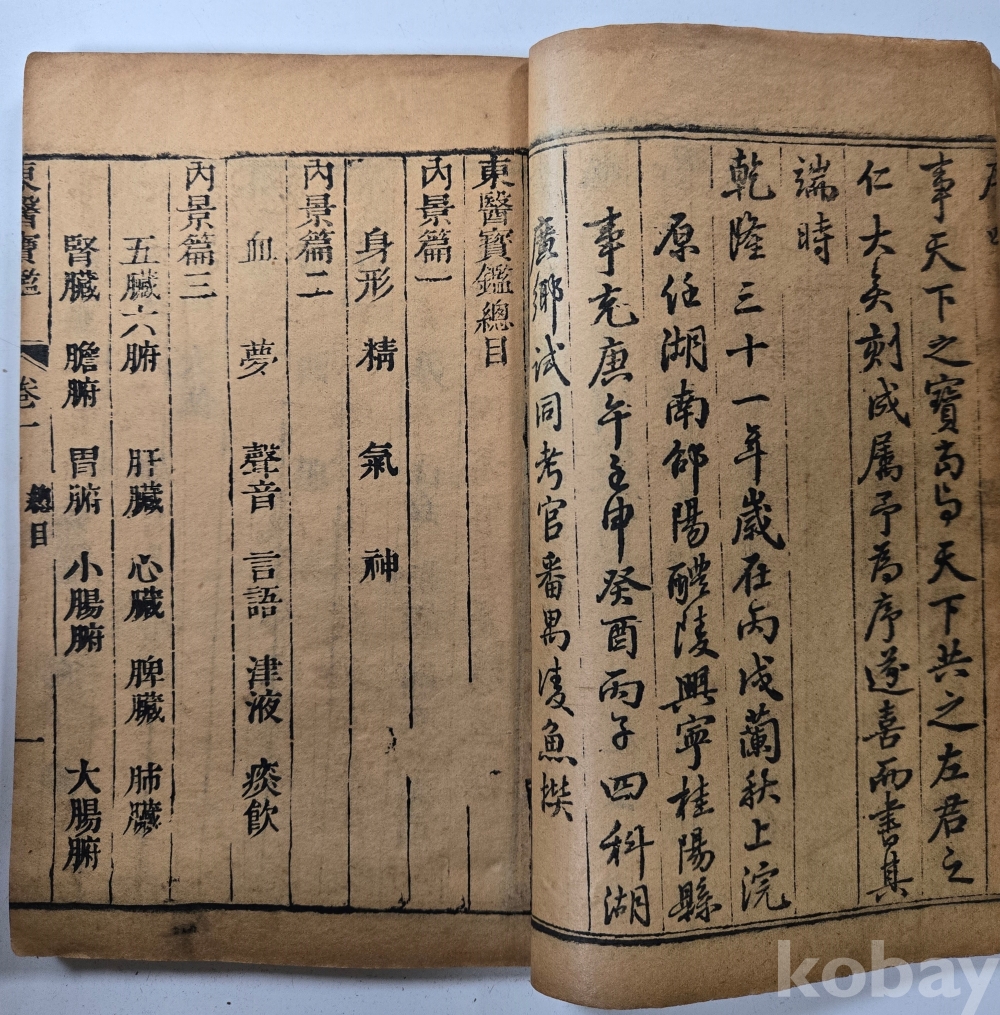 事天下之寶當與天下共之左君之
仁大矣刻成属予為序遂喜而書其
端時
乾隆三十一年歲在丙戌蘭秋上浣
原任湖南邵陽醴陵興寧桂陽縣
事充庚午壬申癸酉丙子四科湖
廣鄉試同考官番禺凌魚撰
東醫寶鑑總目
內景篇一
身形 精 氣 神
內景篇二
血 夢 聲音 言語 津液 痰飮
內景篇三
五臟六腑 肝臟 心臟 脾臟 肺臟
腎臟 膽腑 胃腑 小腸腑 大腸腑
東醫寶鑑 卷一 總目 一
kobay